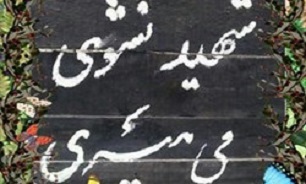 شهید نشوی
می میری